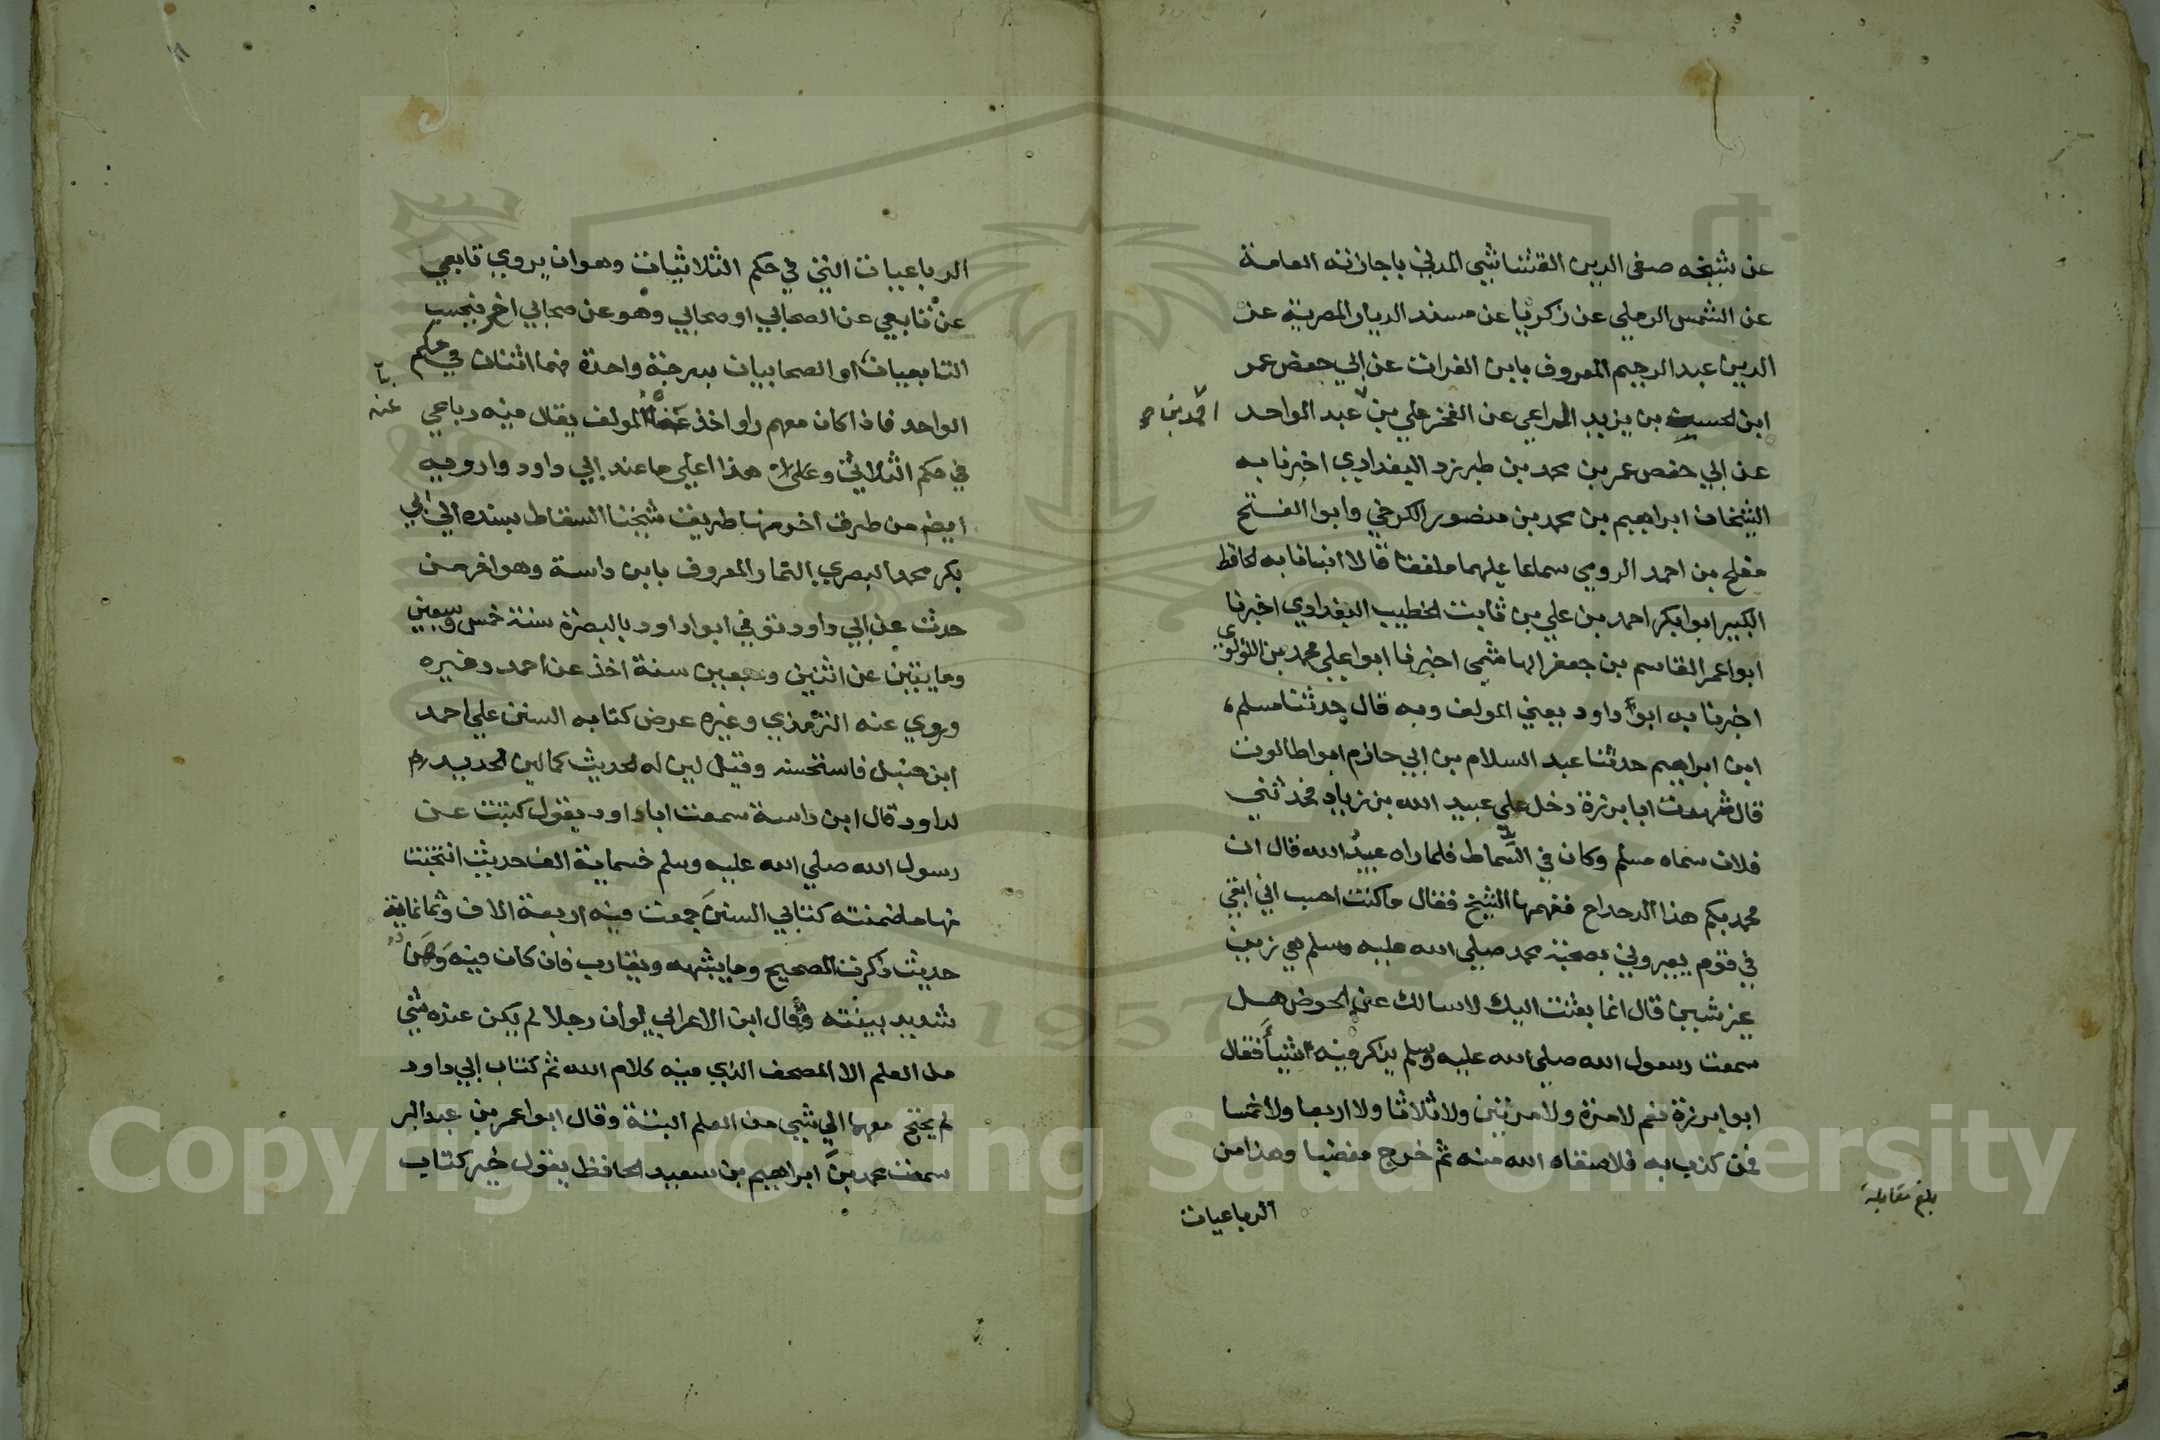 عن شيخه صفى الدين القشاشي المدني باجازته العامة
عن الشمس الرملي عن زكريا عن مسند الديار المصرية عز
الدين عبد الرحيم المعروف بابن الفرات عن ابي حفص عمر
ابن الحسين بن يزيد المراعي عن الفخر علي بن عبد الواحد
احمد بن صح
عن ابي حفص عمر بن محمد بن طبرزد البغدادي اخبرنا به
الشيخان ابراهيم بن محمد بن منصور الكرخي وابوا الفتح
مفلح بن احمد الرومي سماعا عليهما ملفقا قالا انبانا به الحافظ
الكبير ابوا بكر احمد بن علي بن ثابت الخطيب البغدادي اخبرنا
ابوا عمر القاسم بن جعفر الهاشمي اخبرنا ابوا علي محمد بن اللؤلوي
اخبرنا به ابوا داود يعني المولف وبه قال حدثنا مسلم
ابن ابراهيم حدثنا عبد السلام بن ابي حازم ابوا طالوت
قال شهدت ابا برزة دخل علي عبيد الله بن زياد فحدثني
فلان سماه مسلم وكان في السماط فلما راه عبيد الله قال ان
محمديكم هذا الدحداح ففهمها الشيخ فقال ما كنت احسب اني ابقي
في قوم يعيروني بصحبة محمد صلي الله عليه وسلم هي زين
غير شين قال انما بعثت اليك لاسالك عن الحوض هل
سمعت رسول الله صلي الله عليه وسلم يذكر فيه شيأ فقال
ابوا برزة نعم لا مرة ولا مرتين ولا ثلاثا ولا اربعا ولا خمسا
فمن كذب به فلا سقاه الله منه ثم خرج مغضبا وهذا من
بلغ مقابلة
الرباعيات
الرباعيات التي في حكم الثلاثيات وهوان يروي تابعي
عن تابعي عن الصحابي او صحابي وهو عن صحابي اخر فيحسب
التابعيات او الصحابيات بدرجة واحدة فهما اثنان في حكم
الواحد فاذا كان معهم راو اخذ المولف يقال فيه رباعي
عنه
في حكم الثلاثي وعلي هذا اعلي ما عند ابي داود وارويه
ايضا من طرف اخر منها طريق شيخنا السقاط بسنده الي ابي
بكر محمد البصري التمار المعروف بابن داسة وهو اخر من
حدث عن ابي داود توفي ابوا داود بالبصرة سنة خمس وسبعين
ومايتين عن اثنين وسبعين سنة اخذ عن احمد وغيره
وروي عنه الترمذي وغيره عرض كتابه السنن علي احمد
ابن حنبل فاستحسنه وقيل لين له الحديث كما لين الحديد
لداود قال ابن داسة سمعت ابا داود يقول كتبت عن
رسول الله صلي الله عليه وسلم خسماية الف حديث انتخبت
منها ما ضمنته كتابي السنن جمعت فيه اربعة الاف وثمانماية
حديث ذكرت الصحيح وما يشبهه ويقارب فان كان فيه وهن
شديد بينته وقال ابن الاعرابي لوان رجلا لم يكن عنده شي
من العلم الا المصحف الذي فيه كلام الله ثم كتاب ابي داود
لم يحتج معهما الي شي من العلم البتة وقال ابوا عمر بن عبد البر
سمعت محمد بن ابراهيم بن سعيد الحافظ يقول خير كتاب